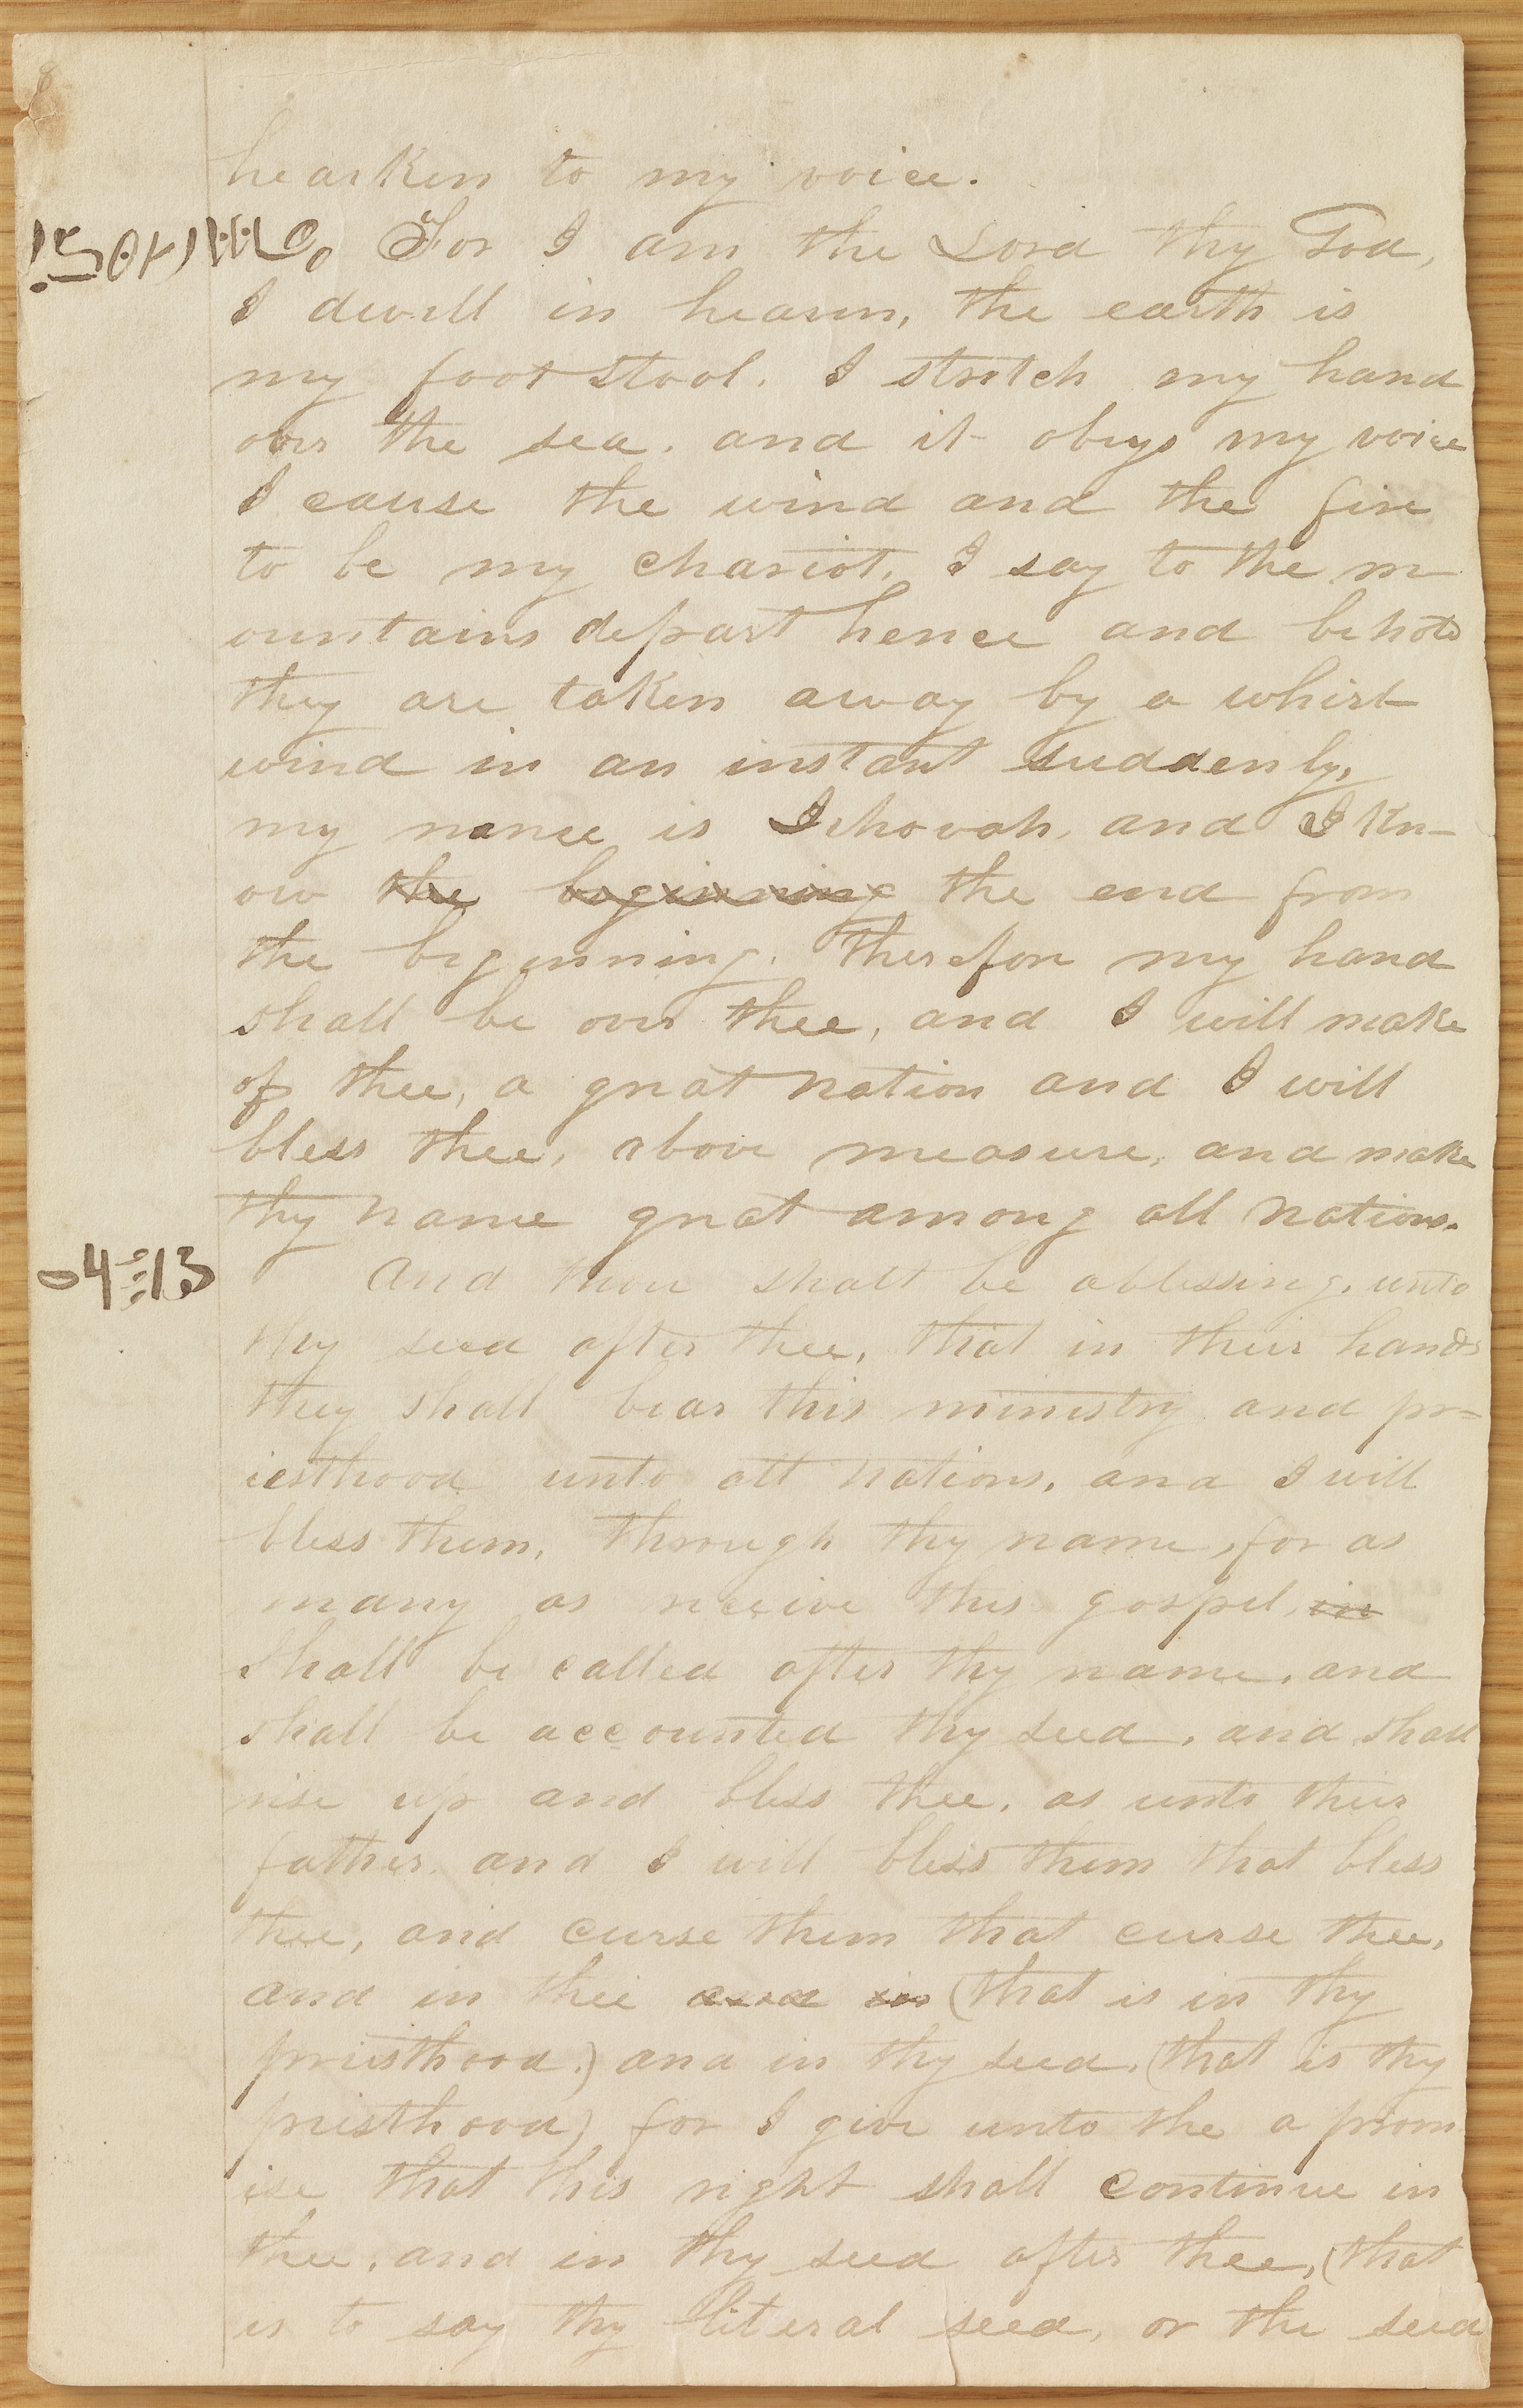 hearken to my voice.
For I am the Lord thy God,
I dwell in heaven, the earth is
my footstool. I stretch my hand
over the sea. and it obeys my voice
I cause the wind and the fire
to be my chariot. I say to the m
ountains depart hence and behold
they are taken away by a whirl
wind in an instant suddenly,
my name is Jehovah, and I kn-
ow the beginning the end from
the beginning. Therefore my hand
shall be over thee, and I will make
of thee, a great nation and I will
bless thee, above measure, and make
thy name great among all nations.
And thou shalt be a blessing, unto
thy seed after thee, that in their hands
they shall bear this ministry and pr=
iesthood unto all nations, and I will
bless them, through thy name, for as
many as receive this gospel, in
shall be called after thy name, and
shall be accounted thy seed, and shall
rise up and bless thee, as unto their
father, and I will bless them that bless
thee, and curse them that curse thee,
and in thee and in (that is in thy
priesthood.) and in thy seed, (that is thy
priesthood) for I give unto the a prom
ise that this right shall continue in
thee, and in thy seed after thee, (that
is to say thy literal seed, or the seed